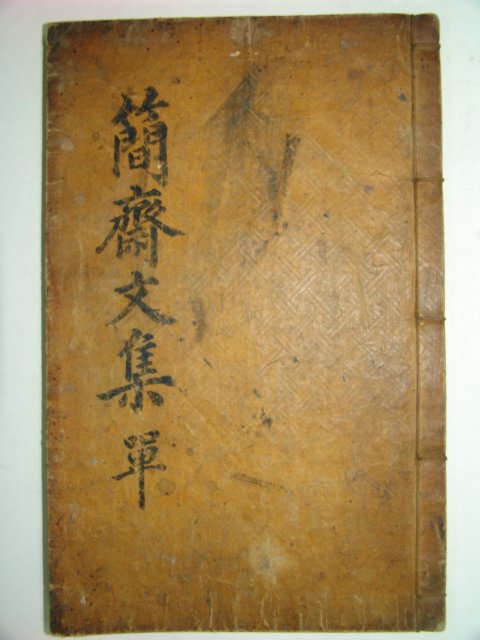 簡齋文集 單